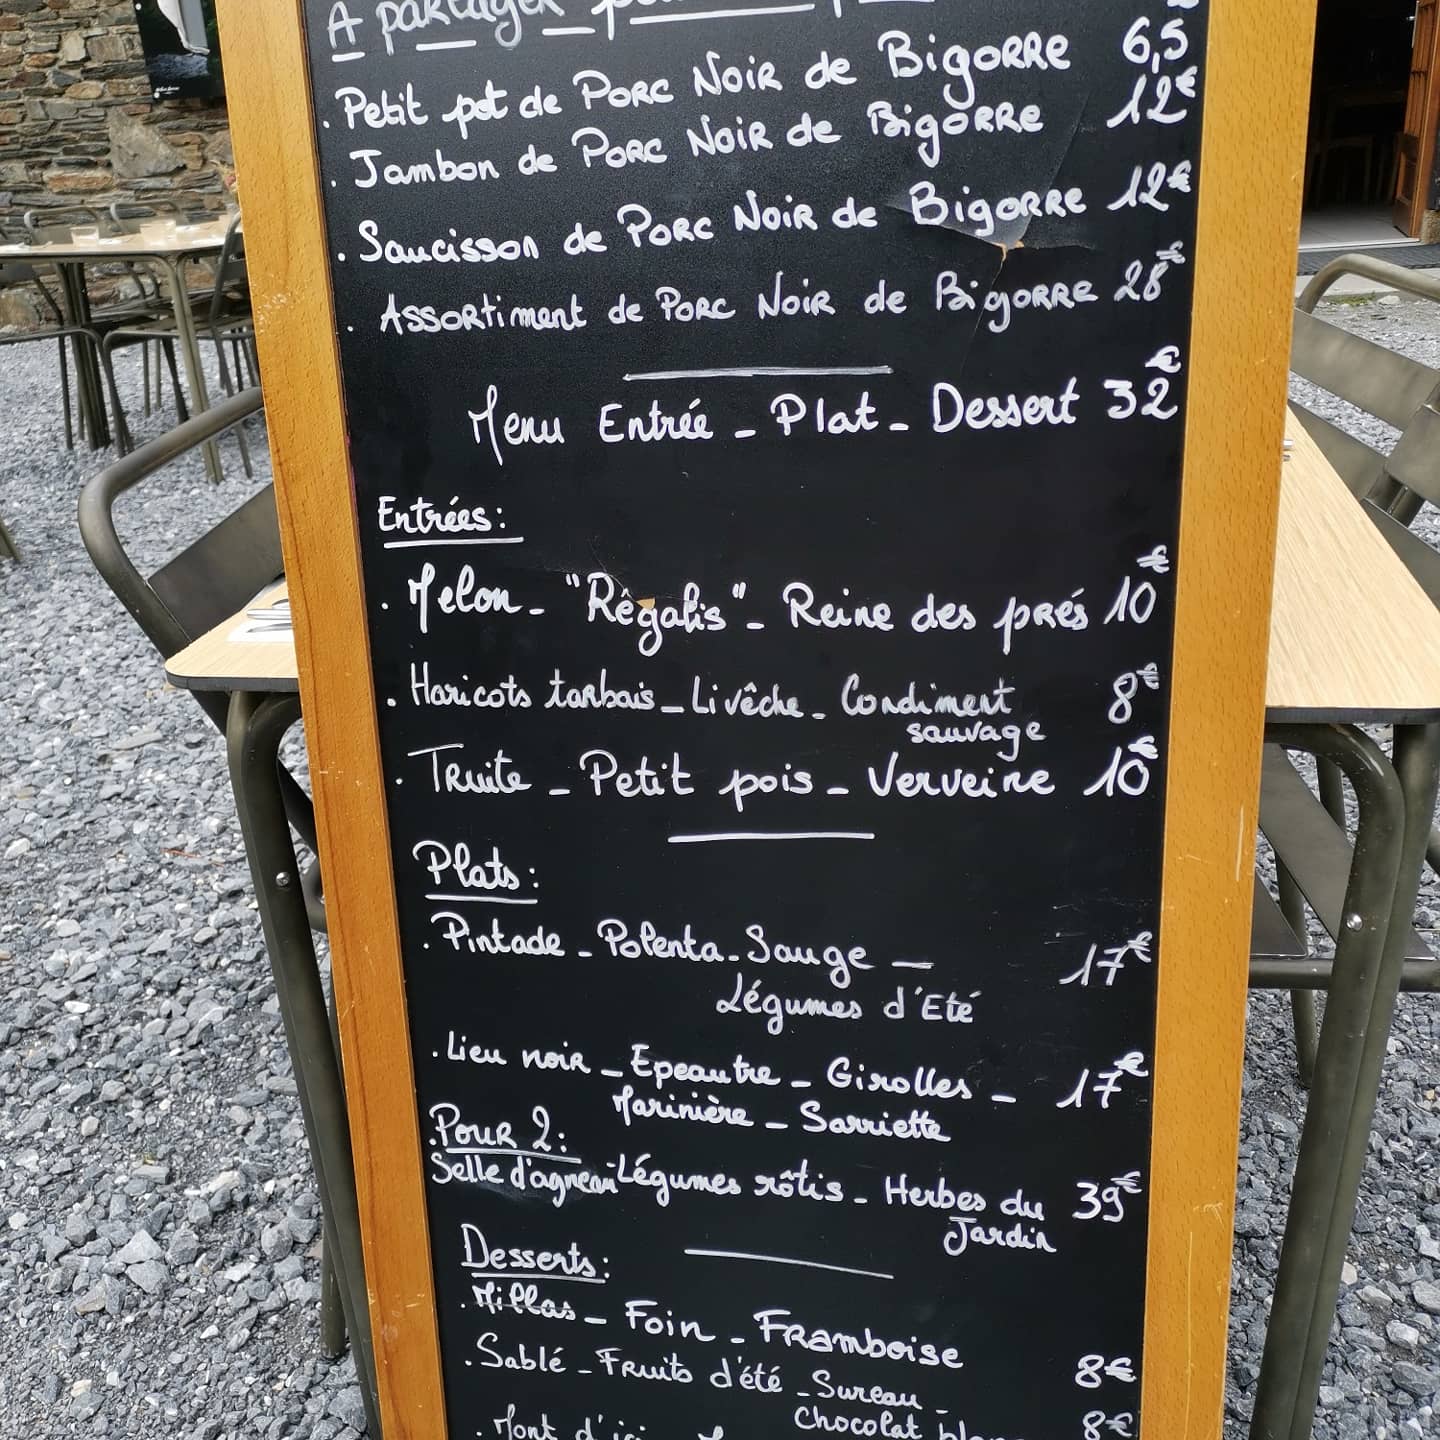 A partager
. Petit pot de Porc Noir de Bigorre 6,5
. Jambon de Porc Noir de Bigorre 12€
. Saucisson de Porc Noir de Bigorre 12€
. Assortiment de Porc Noir de Bigorre 28€
Menu Entrée - Plat - Dessert 32€
Entrées:
. Melon - "Régalis" - Reine des prés 10€
. Haricots tarbais - Livêche - Condiment 8€
sauvage
. Truite - Petit pois - Verveine 10€
Plats:
. Pintade - Polenta - Sauge — 17€
Légumes d'Eté
. Lieu noir - Epeautre - Girolles - 17€
Marinière - Sarriette
. Pour 2:
Selle d'agneau - Légumes rôtis - Herbes du 39€
Jardin
Desserts:
. Millas - Foin - Framboise 8€
. Sablé - Fruits d'été - Sureau -
Chocolat 8€
. Mont d'ici